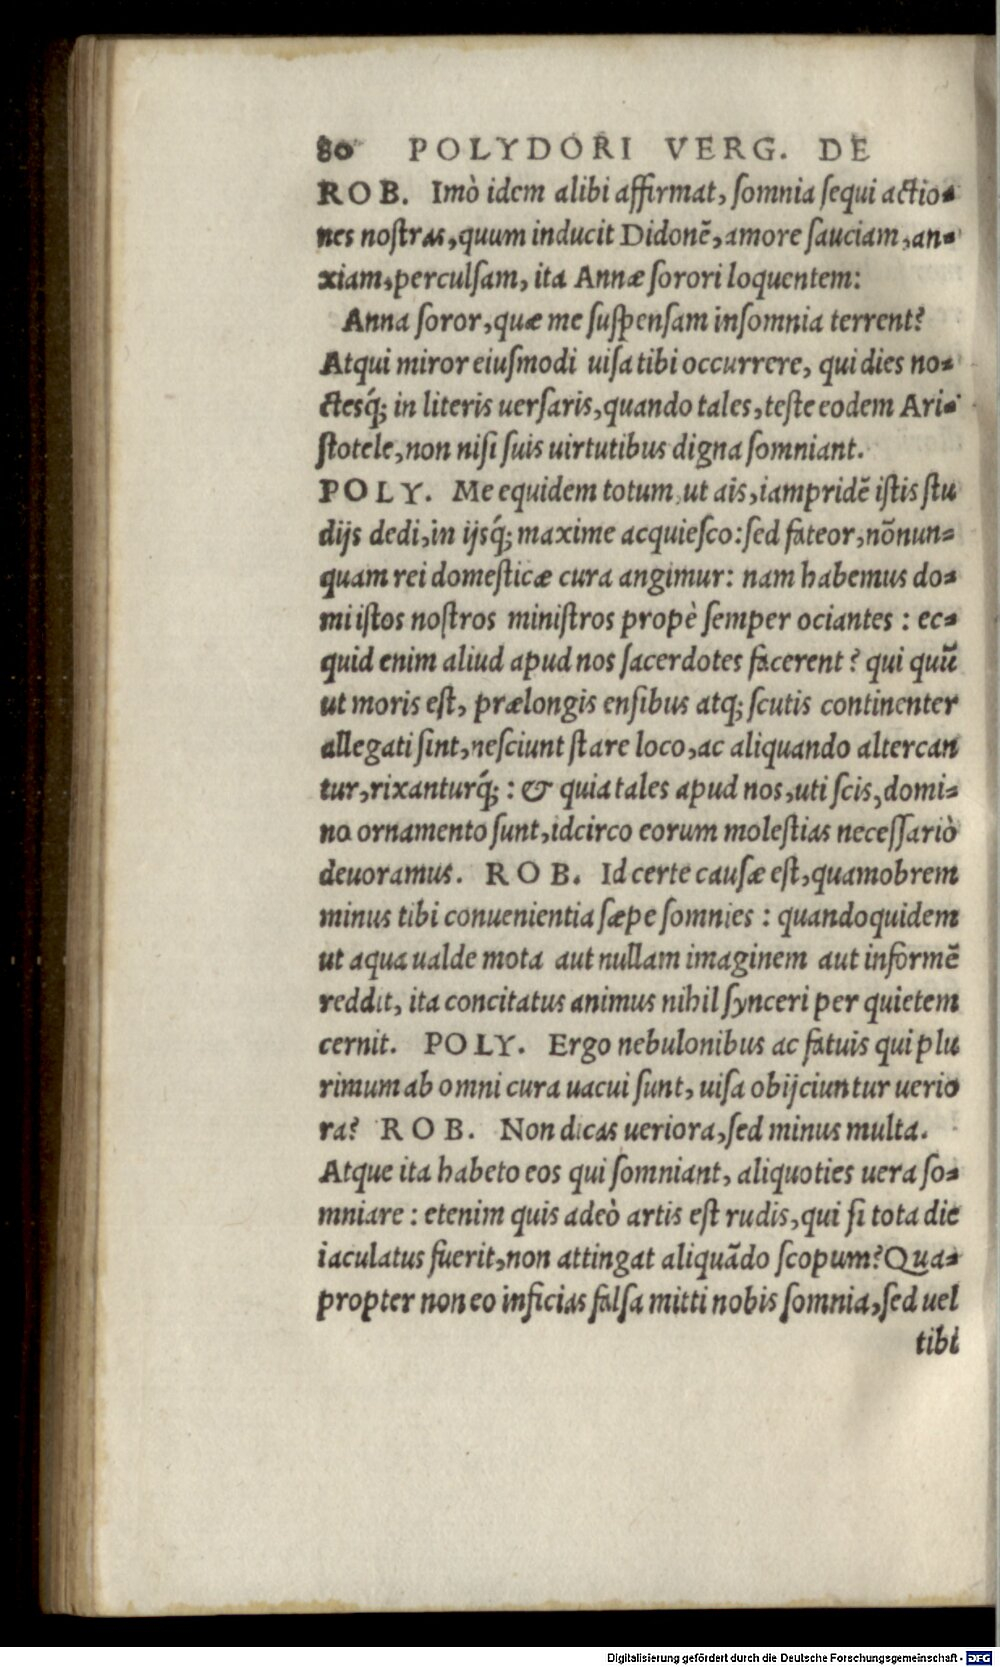 80 POLYDORI VERG. DE
ROB. Imò idem alibi affirmat, ſomnia ſequi actio-
nes noſtras, quum inducit Didonē, amore ſauciam, an-
xiam, perculſam, ita Annæ ſorori loquentem:
Anna ſoror, quæ me ſuſpenſam inſomnia terrent?
Atqui miror eiuſmodi uiſa tibi occurrere, qui dies no-
ctesq́; in literis uerſaris, quando tales, teſte eodem Ari-
ſtotele, non niſi ſuis uirtutibus digna ſomniant.
POLY. Me equidem totum, ut ais, iampridē iſtis ſtu
dijs dedi, in ijsq́; maxime acquieſco: ſed fateor, nōnun-
quam rei domeſticæ cura angimur: nam habemus do-
mi iſtos noſtros miniſtros propè ſemper ociantes : ec-
quid enim aliud apud nos ſacerdotes facerent? qui quū
ut moris eſt, prælongis enſibus atq; ſcutis continenter
allegati ſint, neſciunt ſtare loco, ac aliquando altercan
tur, rixanturq́; : & quia tales apud nos, uti ſcis, domi-
no ornamento ſunt, idcirco eorum moleſtias neceſſariò
deuoramus. ROB. Id certe cauſæ eſt, quamobrem
minus tibi conuenientia ſæpe ſomnies : quandoquidem
ut aqua ualde mota aut nullam imaginem aut informē
reddit, ita concitatus animus nihil ſynceri per quietem
cernit. POLY. Ergo nebulonibus ac fatuis qui plu
rimum ab omni cura uacui ſunt, uiſa obijciuntur uerio
ra? ROB. Non dicas ueriora, ſed minus multa.
Atque ita habeto eos qui ſomniant, aliquoties uera ſo-
mniare : etenim quis adeò artis eſt rudis, qui ſi tota die
iaculatus fuerit, non attingat aliquādo ſcopum? Qua-
propter non eo inficias falſa mitti nobis ſomnia, ſed uel
tibi
Digitalisierung gefördert durch die Deutsche Forschungsgemeinschaft - DFG